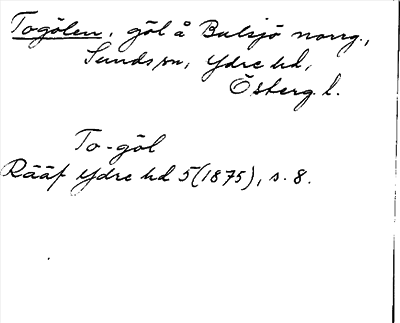 Togölen, göl å Bulsjö norrg.,
Sunds sn, Ydre hd,
Österg. l.
To-göl
Rääf Ydre hd 5(1875), s. 8.